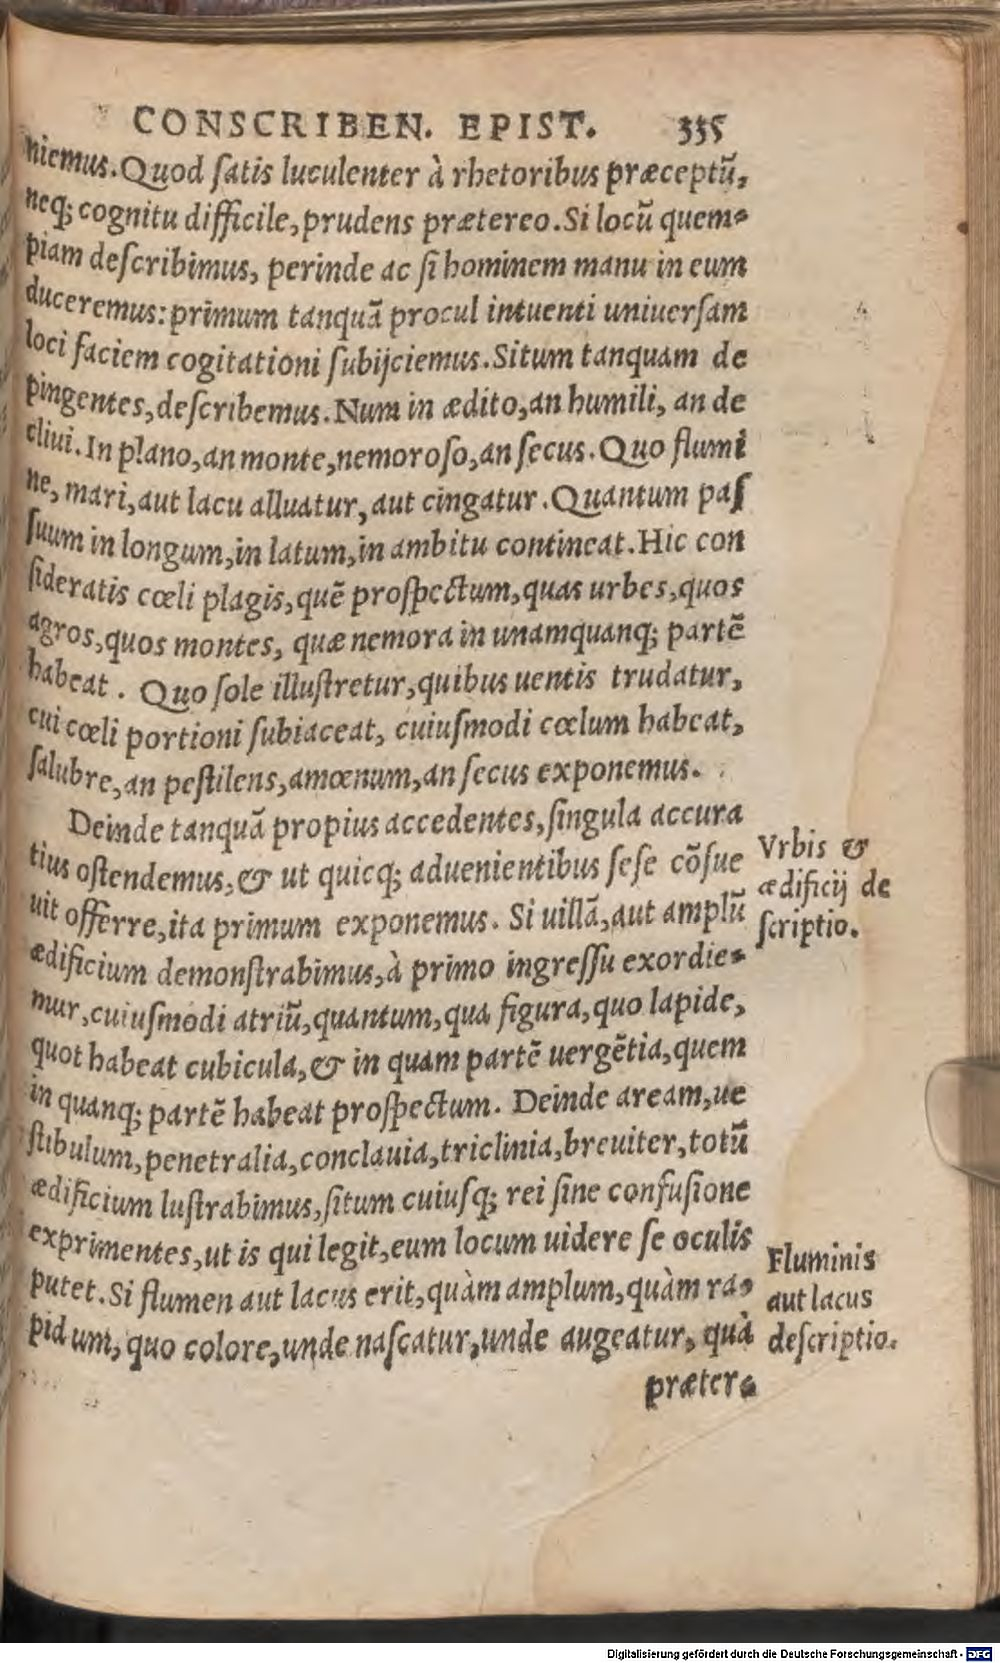 CONSCRIBEN. EPIST. 335
niemus. Quod ſatis luculenter à rhetoribus præceptũ,
neq; cognitu difficile, prudens prætereo. Si locũ quem-
piam deſcribimus, perinde ac ſi hominem manu in eum
duceremus: primum tanquã procul intuenti uniuerſam
loci faciem cogitationi ſubijciemus. Situm tanquam de
pingentes, deſcribemus. Num in ædito, an humili, an de
cliui. In plano, an monte, nemoroſo, an ſecus. Quo flumi
ne, mari, aut lacu alluatur, aut cingatur. Quantum paſ
ſuum in longum, in latum, in ambitu contineat. Hic con
ſideratis cœli plagis, quẽ proſpectum, quas urbes, quos
agros, quos montes, quæ nemora in unamquanq; partẽ
habeat. Quo ſole illuſtretur, quibus uentis trudatur,
cui cœli portioni ſubiaceat, cuiuſmodi cœlum habeat,
ſalubre, an peſtilens, amœnum, an ſecus exponemus.
Deinde tanquã propius accedentes, ſingula accura
tius oſtendemus, & ut quicq; aduenientibus ſeſe cõſue
uit offerre, ita primum exponemus. Si uillã, aut amplũ
ædificium demonſtrabimus, à primo ingreſſu exordie-
mur, cuiuſmodi atriũ, quantum, qua figura, quo lapide,
quot habeat cubicula, & in quam partẽ uergẽtia, quem
in quanq; partẽ habeat proſpectum. Deinde aream, ue
ſtibulum, penetralia, conclauia, triclinia, breuiter, totũ
ædificium luſtrabimus, ſitum cuiuſq; rei ſine confuſione
exprimentes, ut is qui legit, eum locum uidere ſe oculis
putet. Si flumen aut lacus erit, quàm amplum, quàm ra-
pidum, quo colore, unde naſcatur, unde augeatur, quà
præter-
Vrbis &
ædificij de
ſcriptio.
Fluminis
aut lacus
deſcriptio.
Digitalisierung gefördert durch die Deutsche Forschungsgemeinschaft - DFG